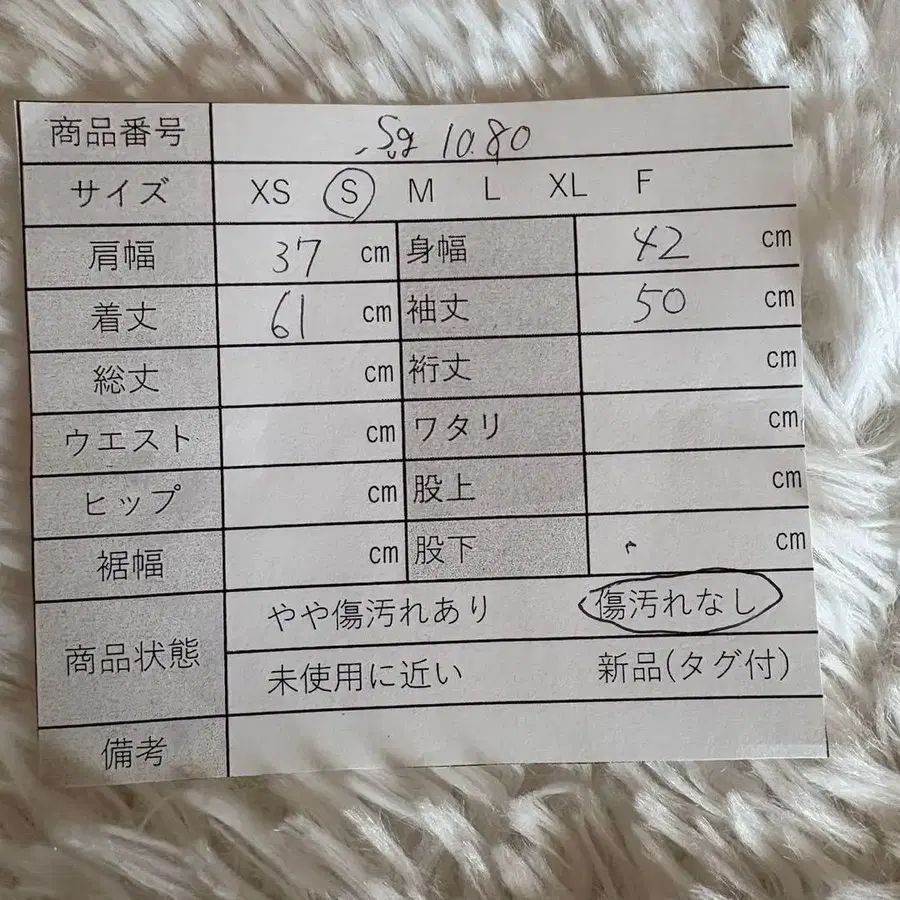 商品番号 Sg 10.80
サイズ XS S M L XL F
肩幅 37 cm 身幅 42 cm
着丈 61 cm 袖丈 50 cm
総丈 cm 裄丈 cm
ウエスト cm ワタリ cm
ヒップ cm 股上 cm
裾幅 cm 股下 cm
商品状態 やや傷汚れあり 傷汚れなし
未使用に近い 新品(タグ付)
備考